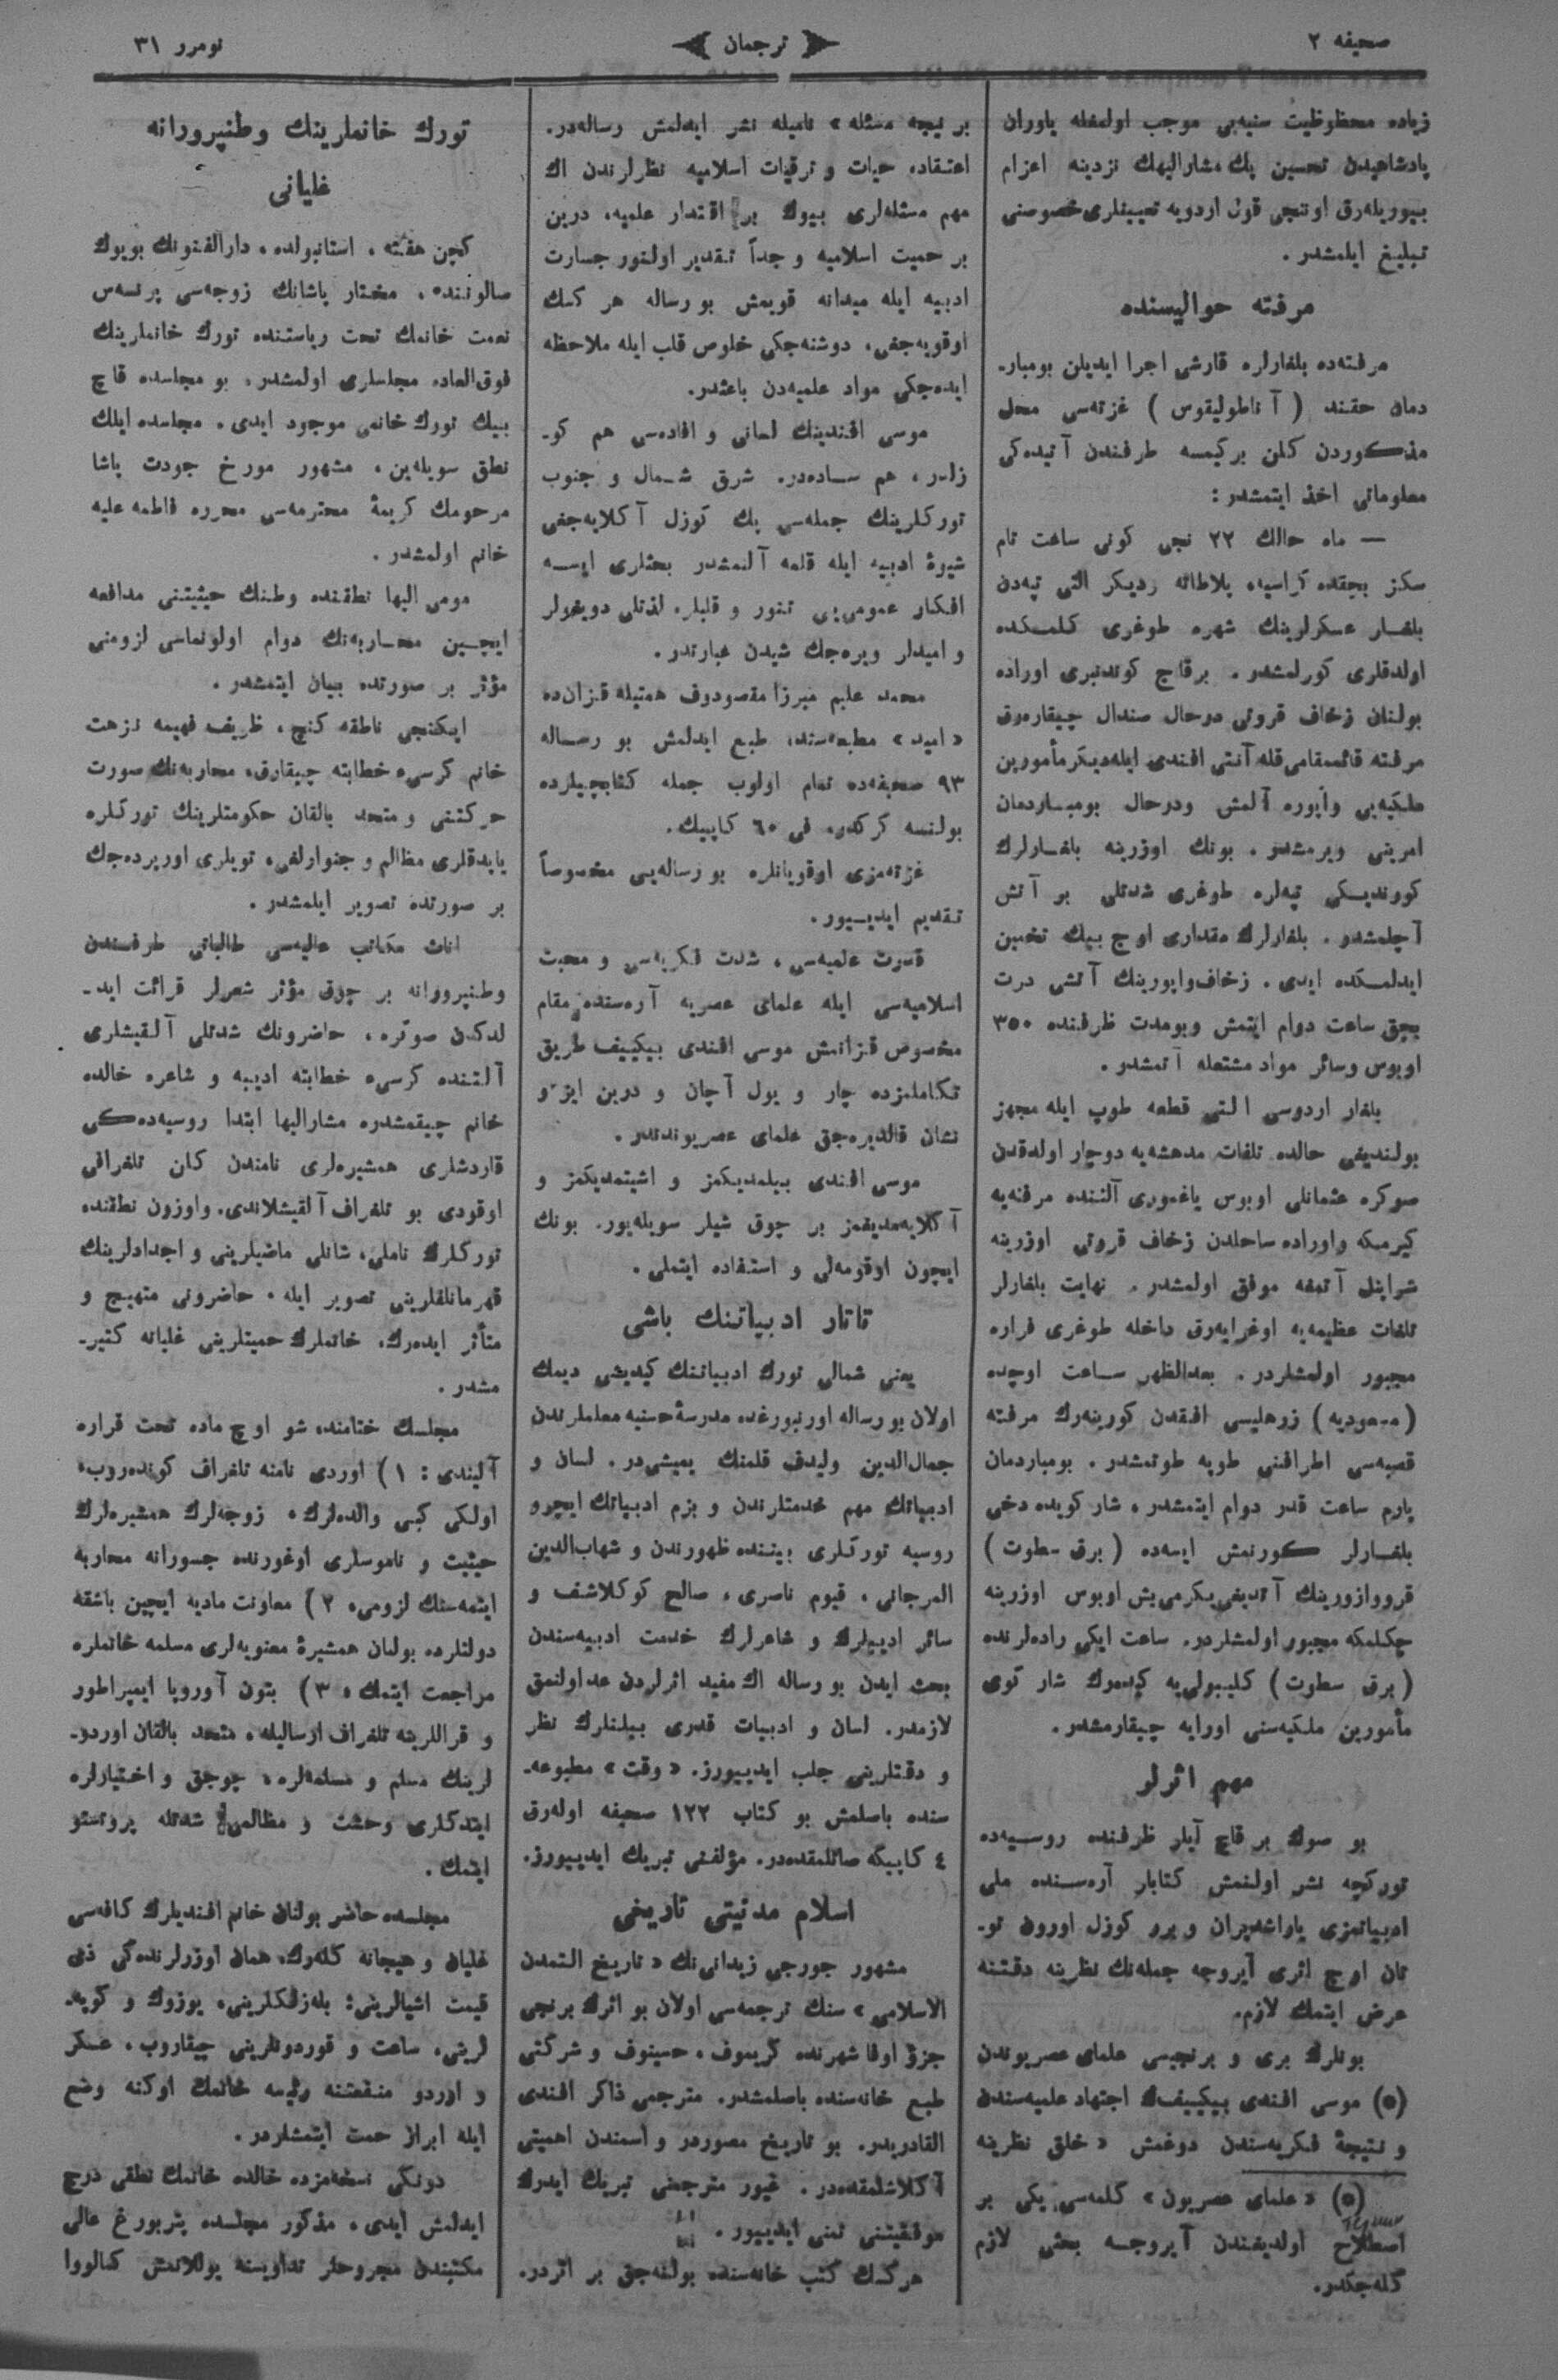 صحیفه ٢
ترجمان
نومرو ٣١
زیاده محظوظیت سنیه‌یی موجب اولمغله یاوران
پادشاهیدن تحسین بك مشارالیهك نزدینه اعزام
بیوریله‌رق اوننجی قول اردویه تعیینلری خصوصنی
تبلیغ ایلمشدر.
مرفته حوالیسنده
مرفته‌ده بلغارلره قارشی اجرا ایدیلن بومبار-
دمان حقند (آناطولیقوس) غزته‌سی محل
مذكوردن كلن بركیمسه طرفندن آتیده‌كی
معلوماتی اخذ ایتمشدر:
— ماه حالك ٢٢ نجی كونی ساعت تام
سكز بچقده كراسیه، پلاطانه ردیكر التی تپه‌دن
بلغار عسكرلرینك شهره طوغری كلمكده
اولدقلری كورلمشدر. برقاچ كوندنبری اوراده
بولنان زحاف قروتی درحال صندال چیقاره‌رق
مرفته قائممقامی قله آنتی افندی ایله‌دیكر مأمورین
ملكیه‌یی واپوره آلمش ودرحال بومباردمان
امرینی ویرمشدر. بونك اوزرینه بلغارلرك
كووندیكی تپه‌لره طوغری شدتلی بر آتش
آچلمشدر. بلغارلرك مقداری اوچ بیك تخمین
ایدلمكده ایدی. زحاف واپورینك آتشی درت
بچق ساعت دوام ایتمش وبومدت ظرفنده ٣٥٠
اوبوس وسائر مواد مشتعله آتمشدر.
بلغار اردوسی التی قطعه طوپ ایله مجهز
بولندیغی حالده تلفات مدهشه‌یه دوچار اولدقدن
صوكره عثمانلی اوبوس یاغموری آلتنده مرفته‌یه
كیرمكه واوراده ساحلدن زحاف قروتی اوزرینه
شراپنل آتمغه موفق اولمشدر. نهایت بلغارلر
تلفات عظیمه‌یه اوغرایه‌رق داخله طوغری فراره
مجبور اولمشلردر. بعدالظهر ساعت اوچده
(مسعودیه) زرهلیسی افقدن كورینه‌رك مرفته
قصبه‌سی اطرافنی طوپه طوتمشدر. بومباردمان
یارم ساعت قدر دوام ایتمشدر، شاركویده دخی
بلغارلر كورنمش ایسه‌ده (برق سطوت)
قرووازورینك آتدیغی یكرمی‌بش اوبوس اوزرینه
چكلمكه مجبور اولمشلردر. ساعت ایكی راده‌لرنده
(برق سطوت) كلیبولی‌یه كیده‌رك شار كوی
مأمورین ملكیه‌سنی اورایه چیقارمشدر.
مهم اثرلر
بو صوك بر قاچ آیلر ظرفنده روسیه‌ده
توركچه نشر اولنمش كتابلر آره‌سنده ملی
ادبیاتمزی یاراشدیران و یرر كوزل اورون تو-
تان اوچ اثری آیروجه جمله‌نك نظرینه دقتنه
عرض ایتمك لازم.
بونلرك بری و برنجیسی علمای عصریوندن
(*) موسی افندی بیكییفك اجتهاد علمیه‌سندن
و نتیجهٔ فكریه‌سندن دوغمش «خلق نظرینه
(*) «علمای عصریون» كلمه‌سی یكی بر
اصطلاح اولدیغندن آیروجه بحثی لازم
كله‌جكدر.
بر نیچه مسئله» نامیله نشر ایدلمش رساله‌در.
اعتقاد، حیات و ترقیات اسلامیه نظرلرندن اك
مهم مسئله‌لری بیوك بر اقتدار علمیه، درین
بر حمیت اسلامیه و جداً تقدیر اولنور جسارت
ادبیه ایله میدانه قویمش بو رساله هر كسك
اوقویه‌جغی، دوشنه‌جكی خلوص قلب ایله ملاحظه
ایده‌جكی مواد علمیه‌دن باعثدر.
موسی افندینك لسانی و افاده‌سی هم كو-
زلدر، هم ساده‌در. شرق شمال و جنوب
توركلرینك جمله‌سی پك كوزل آكلایه‌جغی
شیوهٔ ادبیه ایله قلمه آلنمشدر بحثلری ایسه
افكار عمومی‌یی تنور و قلبلره لذتلی دویغولر
و امیدلر ویره‌جك شیدن عبارتدر.
محمد علیم میرزا مقصودوف همتیله قزان‌ده
«امید» مطبعه‌سنده طبع ایدلمش بو رساله
٩٣ صحیفه‌ده تمام اولوب جمله كتابچیلرده
بولنسه كركدر، فی ٦٠ كاپیك.
غزته‌مزی اوقویانلره بو رساله‌یی مخصوصاً
تقدیم ایدییور.
قدرت علمیه‌سی، شدت فكریه‌سی و محبت
اسلامیه‌سی ایله علمای عصریه آره‌سنده مقام
مخصوص قزانمش موسی افندی بیكییف طریق
تكاملمزده چار و یول آچان و درین ایز و
نشان قالدیره‌جق علمای عصریوندندر.
موسی افندی بیلمدیكمز و اشیتمدیكمز و
آكلایه‌مدیغمز بر چوق شیلر سویله‌یور. بونك
ایچون اوقومه‌لی و استفاده ایتملی.
تاتار ادبیاتنك باشی
یعنی شمالی تورك ادبیاتنك كیدیشی دیمك
اولان بو رساله اورنبورغده مدرسهٔ حسنیه معلملرندن
جمال‌الدین ولیدف قلمنك یمیشی‌در. لسان و
ادبیاتك مهم خدمتلرندن و بزم ادبیاتك ایچرو
روسیه توركلری بیننده ظهورندن و شهاب‌الدین
المرجانی، قیوم ناصری، صالح كوكلاشف و
سائر ادیبلرك و شاعرلرك خدمت ادبیه‌سندن
بحث ایدن بو رساله اك مفید اثرلردن عد اولنمق
لازمدر. لسان و ادبیات قدری بیلنلرك نظر
و دقتلرینی جلب ایدییورز. «وقت» مطبوعه-
سنده باصلمش بو كتاب ١٢٢ صحیفه اوله‌رق
٤ كاپیگه صاتلمقده‌در. مؤلفنی تبریك ایدییورز.
اسلام مدنیتی تاریخی
مشهور جورجی زیدانی‌نك «تاریخ التمدن
الاسلامی» سنك ترجمه‌سی اولان بو اثرك برنجی
جزؤ اوفا شهرنده كریموف، حسینوف و شركتی
طبع خانه‌سنده باصلمشدر. مترجمی ذاكر افندی
القادریدر. بو تاریخ مصوردر و اسمندن اهمیتی
آكلاشلمقده‌در. غیور مترجمنی تبریك ایدرك
موفقیتنی تمنی ایدییور.
هركسك كتب خانه‌سنده بولنه‌جق بر اثردر.
تورك خانملرینك وطنپرورانه
غلیانی
كچن هفته، استانبولده، دارالفنونك بویوك
صالوننده، مختار پاشانك زوجه‌سی پرنسس
نعمت خانمك تحت ریاستنده تورك خانملرینك
فوق‌العاده مجلسلری اولمشدر. بو مجلسده قاچ
بیك تورك خانمی موجود ایدی. مجلسده ایلك
نطق سویله‌ین، مشهور مورخ جودت پاشا
مرحومك كریمهٔ محترمه‌سی محرره فاطمه علیه
خانم اولمشدر.
مومی الیها نطقنده وطنك حیثیتنی مدافعه
ایچین محاربه‌نك دوام اولونماسی لزومنی
مؤثر بر صورتده بیان ایتمشدر.
ایكنجی ناطقه كنج، ظریف فهیمه نزهت
خانم كرسیء خطابته چیقارق، محاربه‌نك صورت
حركتنی و متحد بالقان حكومتلرینك توركلره
یاپدقلری مظالم و جنوارلغی، تویلری اورپرده‌جك
بر صورتده تصویر ایلمشدر.
اناث مكاتب عالیه‌سی طالباتی طرفندن
وطنپرورانه بر چوق مؤثر شعرلر قرائت اید-
لدكدن صوكره، حاضرونك شدتلی آلقیشلری
آلتنده كرسیء خطابته ادیبه و شاعره خالده
خانم چیقمشدر، مشارالیها ابتدا روسیه‌ده‌كی
قاردشلری همشیره‌لری نامندن كلن تلغرافی
اوقودی بو تلغراف آلقیشلاندی. واوزون نطقنده
توركلرك ناملی، شانلی ماضیلرینی و اجدادلرینك
قهرمانلقلرینی تصویر ایله، حاضرونی متهیج و
متأثر ایده‌رك، خانملرك حمیتلرینی غلیانه كتیر-
مشدر.
مجلسك ختامنده شو اوچ ماده تحت قراره
آلیندی: ١) اوردی نامنه تلغراف كونده‌روب،
اولكی كبی والده‌لرك، زوجه‌لرك همشیره‌لرك
حیثیت و ناموسلری اوغورنده جسورانه محاربه
ایتمه‌سنك لزومی، ٢) معاونت مادیه ایچین باشقه
دولتلرده بولنان همشیرهٔ معنویه‌لری مسلمه خانملره
مراجعت ایتمك، ٣) بتون آوروپا ایمپراطور
و قراللرینه تلغراف ارسالیله، متحد بالقان اوردو-
لرینك مسلم و مسلمه‌لره، چوجق و اختیارلره
ایتدكلری وحشت و مظالمی شدتله پروتستو
ایتمك.
مجلسده حاضر بولنان خانم افندیلرك كافه‌سی
غلیان و هیجانه كله‌رك، همان اوزرلرنده‌كی ذی
قیمت اشیالرینی: بله‌زلكلرینی، یوزوك و كوپه-
لرینی، ساعت و قوردونلرینی چیقاروب، عسكر
و اوردو منفعتنه رئیسه خانمك اوكنه وضع
ایله ابراز حمیت ایتمشلردر.
دونكی نسخه‌مزده خالده خانمك نطقی درج
ایدلمش ایدی، مذكور مجلسده پتربورغ عالی
مكتبندن مجروحلر تداویسنه یوللانمش